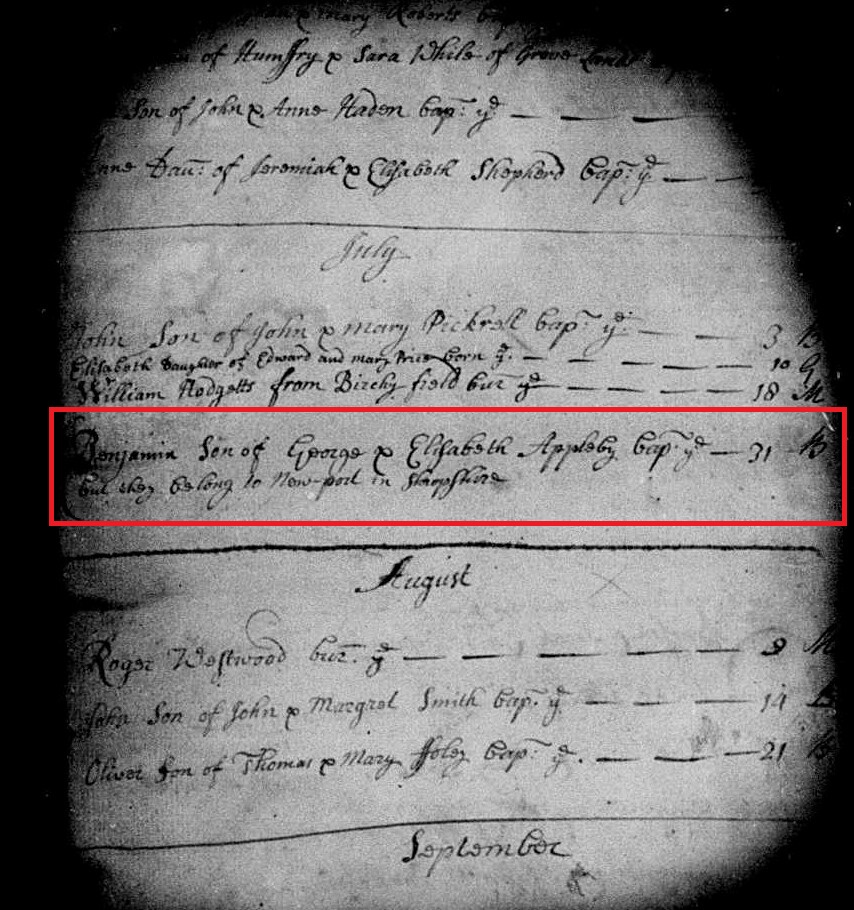 & mary Roberts
of Humffry & Sara While of Grove
Son of John & Anne Haden bap: ye
Dau: of Jeremiah & Elisabeth Shepherd bap: ye
July
John Son of John & Mary Pickrell bap: ye 3 B
Elisabeth Daughter of Edward and mary Price born ye 10 G
William Hodgetts from Birchy field bur ye 18 M
Benjamin Son of George & Elisabeth Appleby bap: ye 31 B
but they belong to New-port in Shropshire
August
Roger Westwood bur: ye 9 M
John Son of John & Margret Smith bap. ye 14 B
Oliver Son of Thomas & Mary ffoley bap: ye. 21 B
September